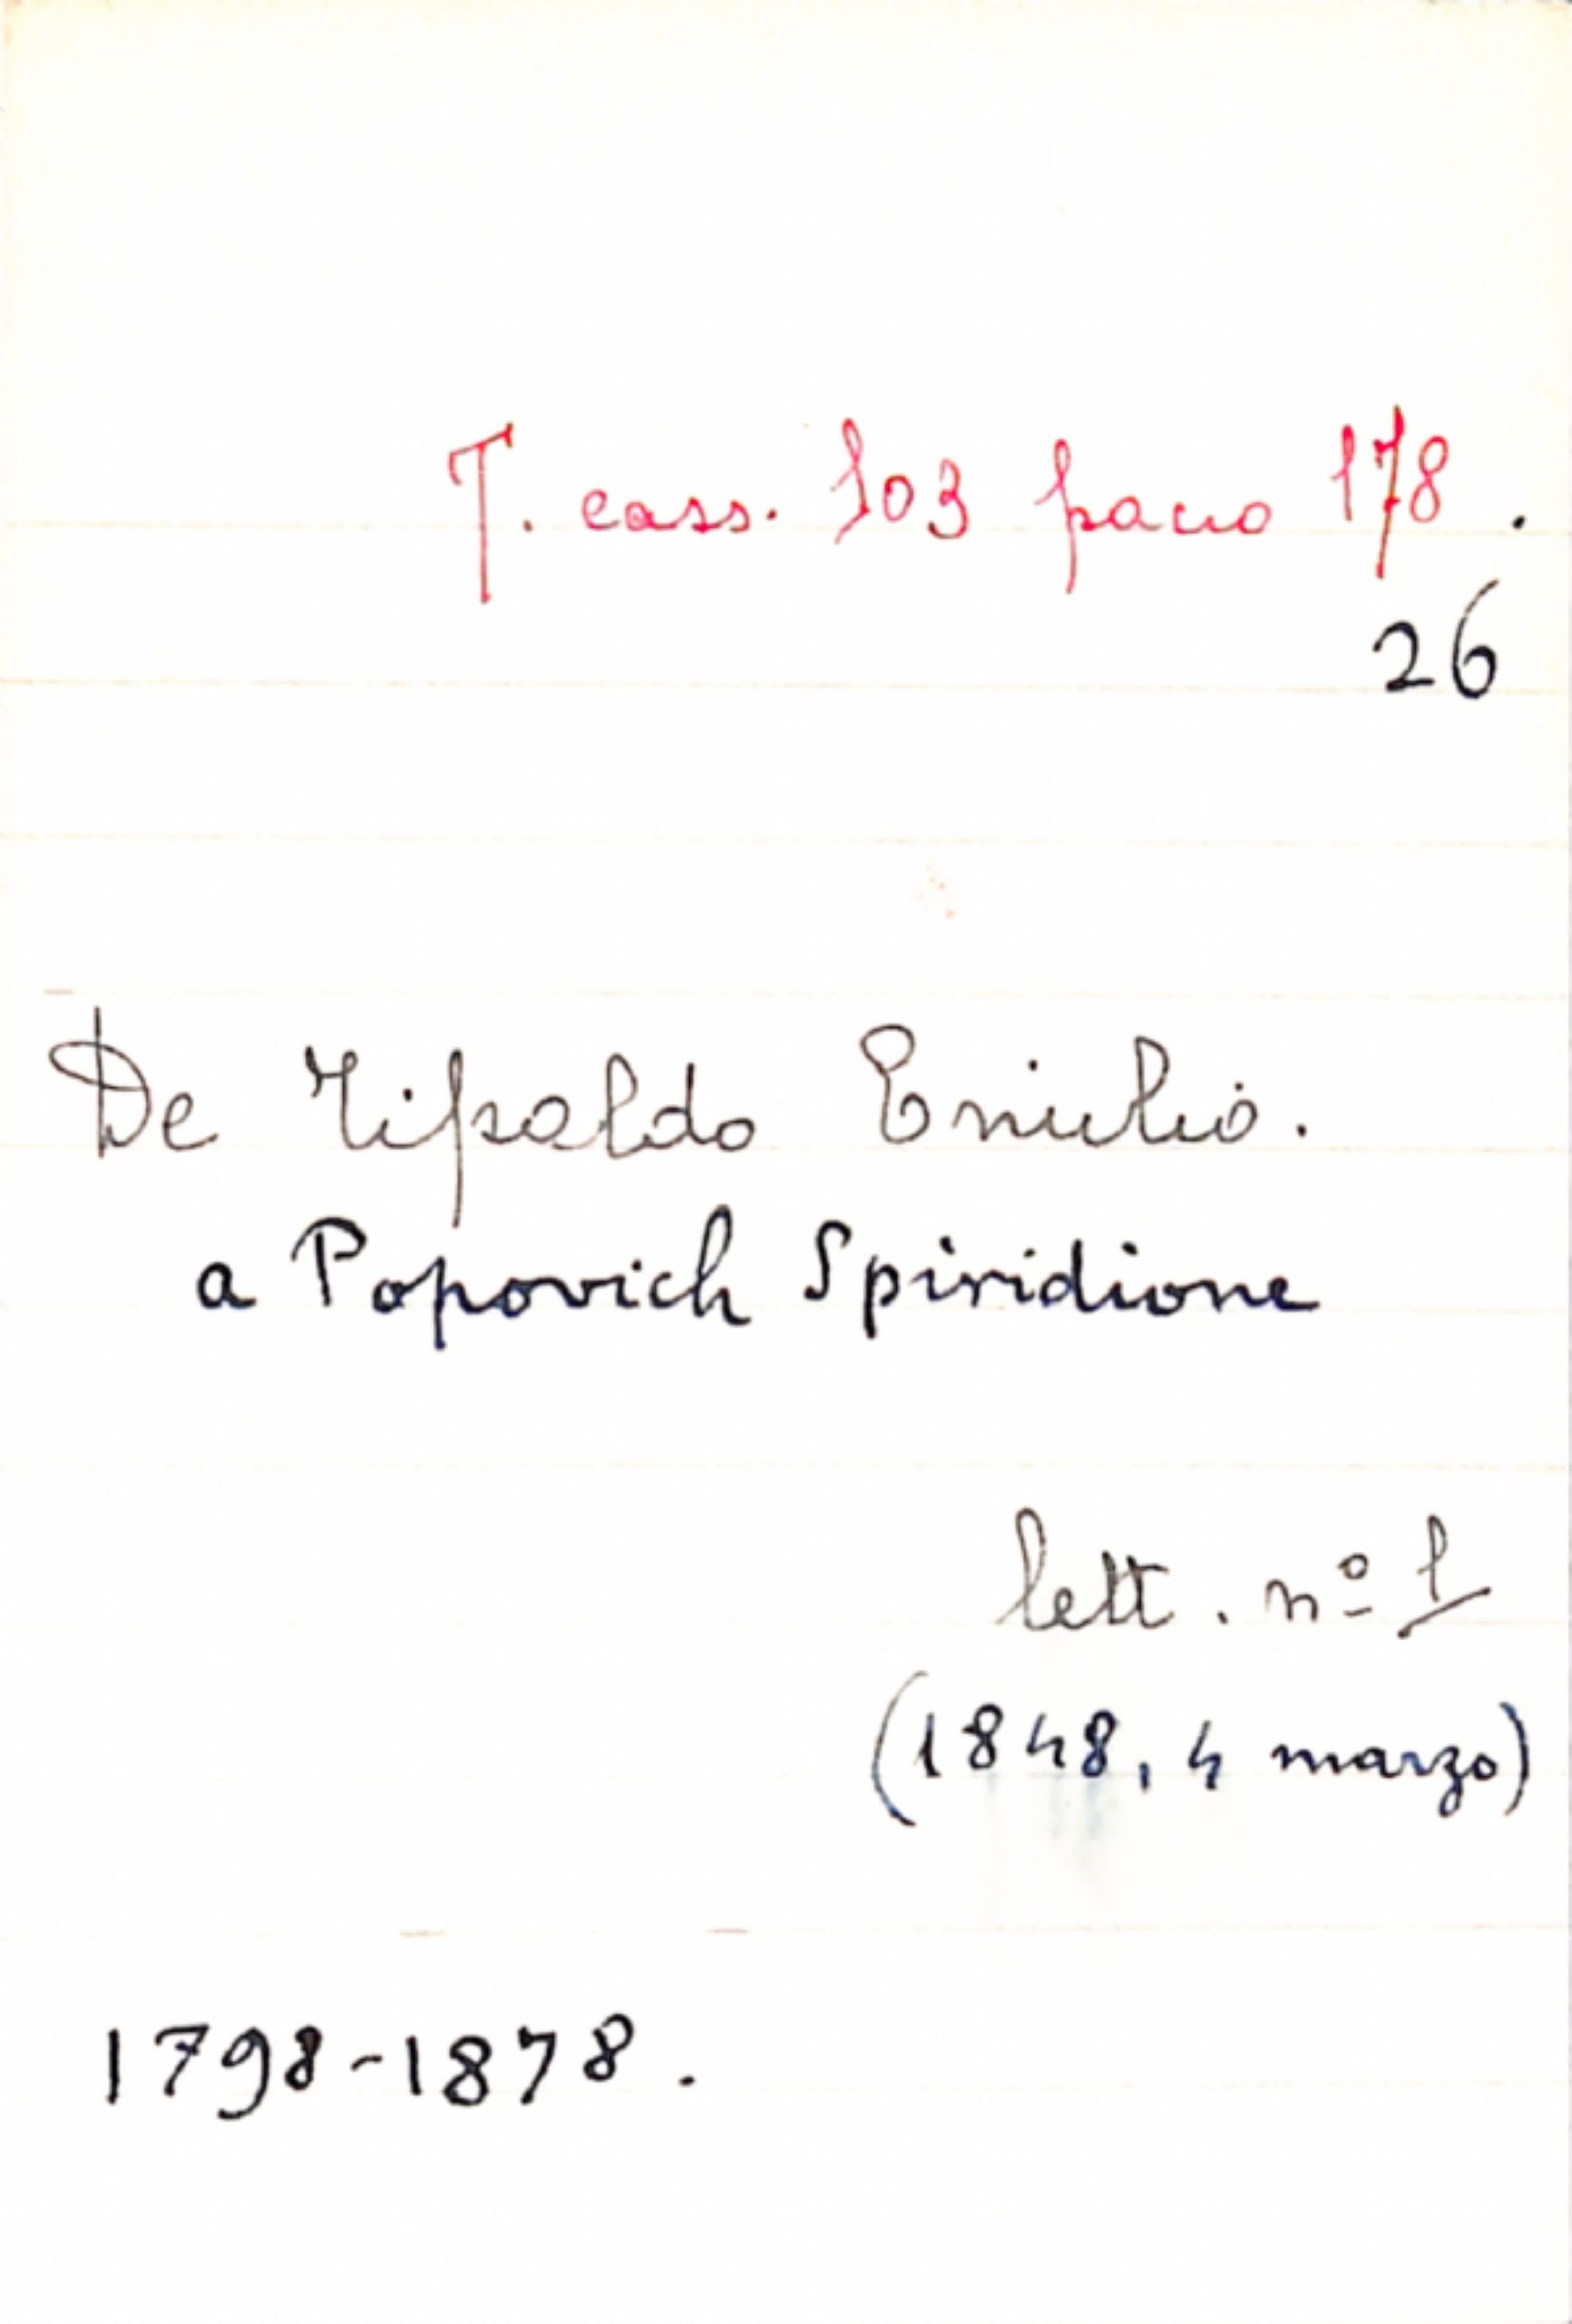 T. cass. 103 pacco 178.
26
De Tipaldo Emilio.
a Popovich Spiridione
lett. nº 1
(1848, 4 marzo)
1798-1878.